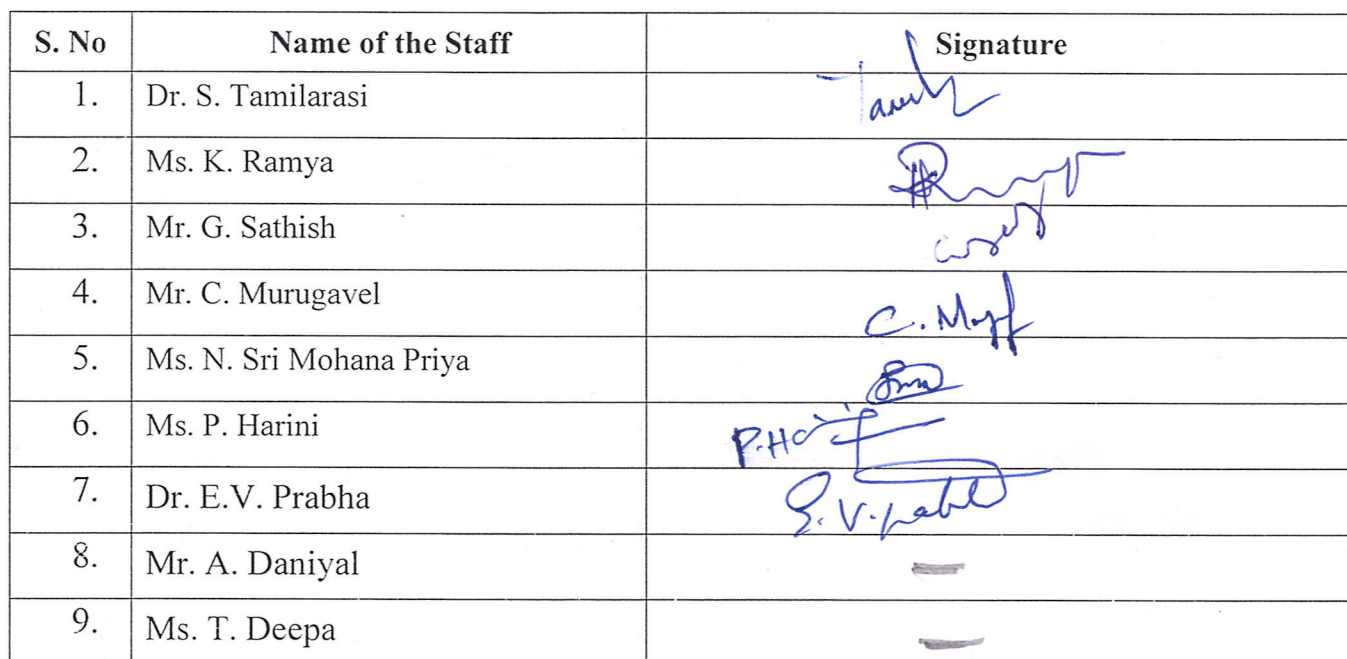 S. No Name of the Staff Signature
1. Dr. S. Tamilarasi
2. Ms. K. Ramya
3. Mr. G. Sathish
4. Mr. C. Murugavel C.
5. Ms. N. Sri Mohana Priya
6. Ms. P. Harini
7. Dr. E.V. Prabha
8. Mr. A. Daniyal
9. Ms. T. Deepa